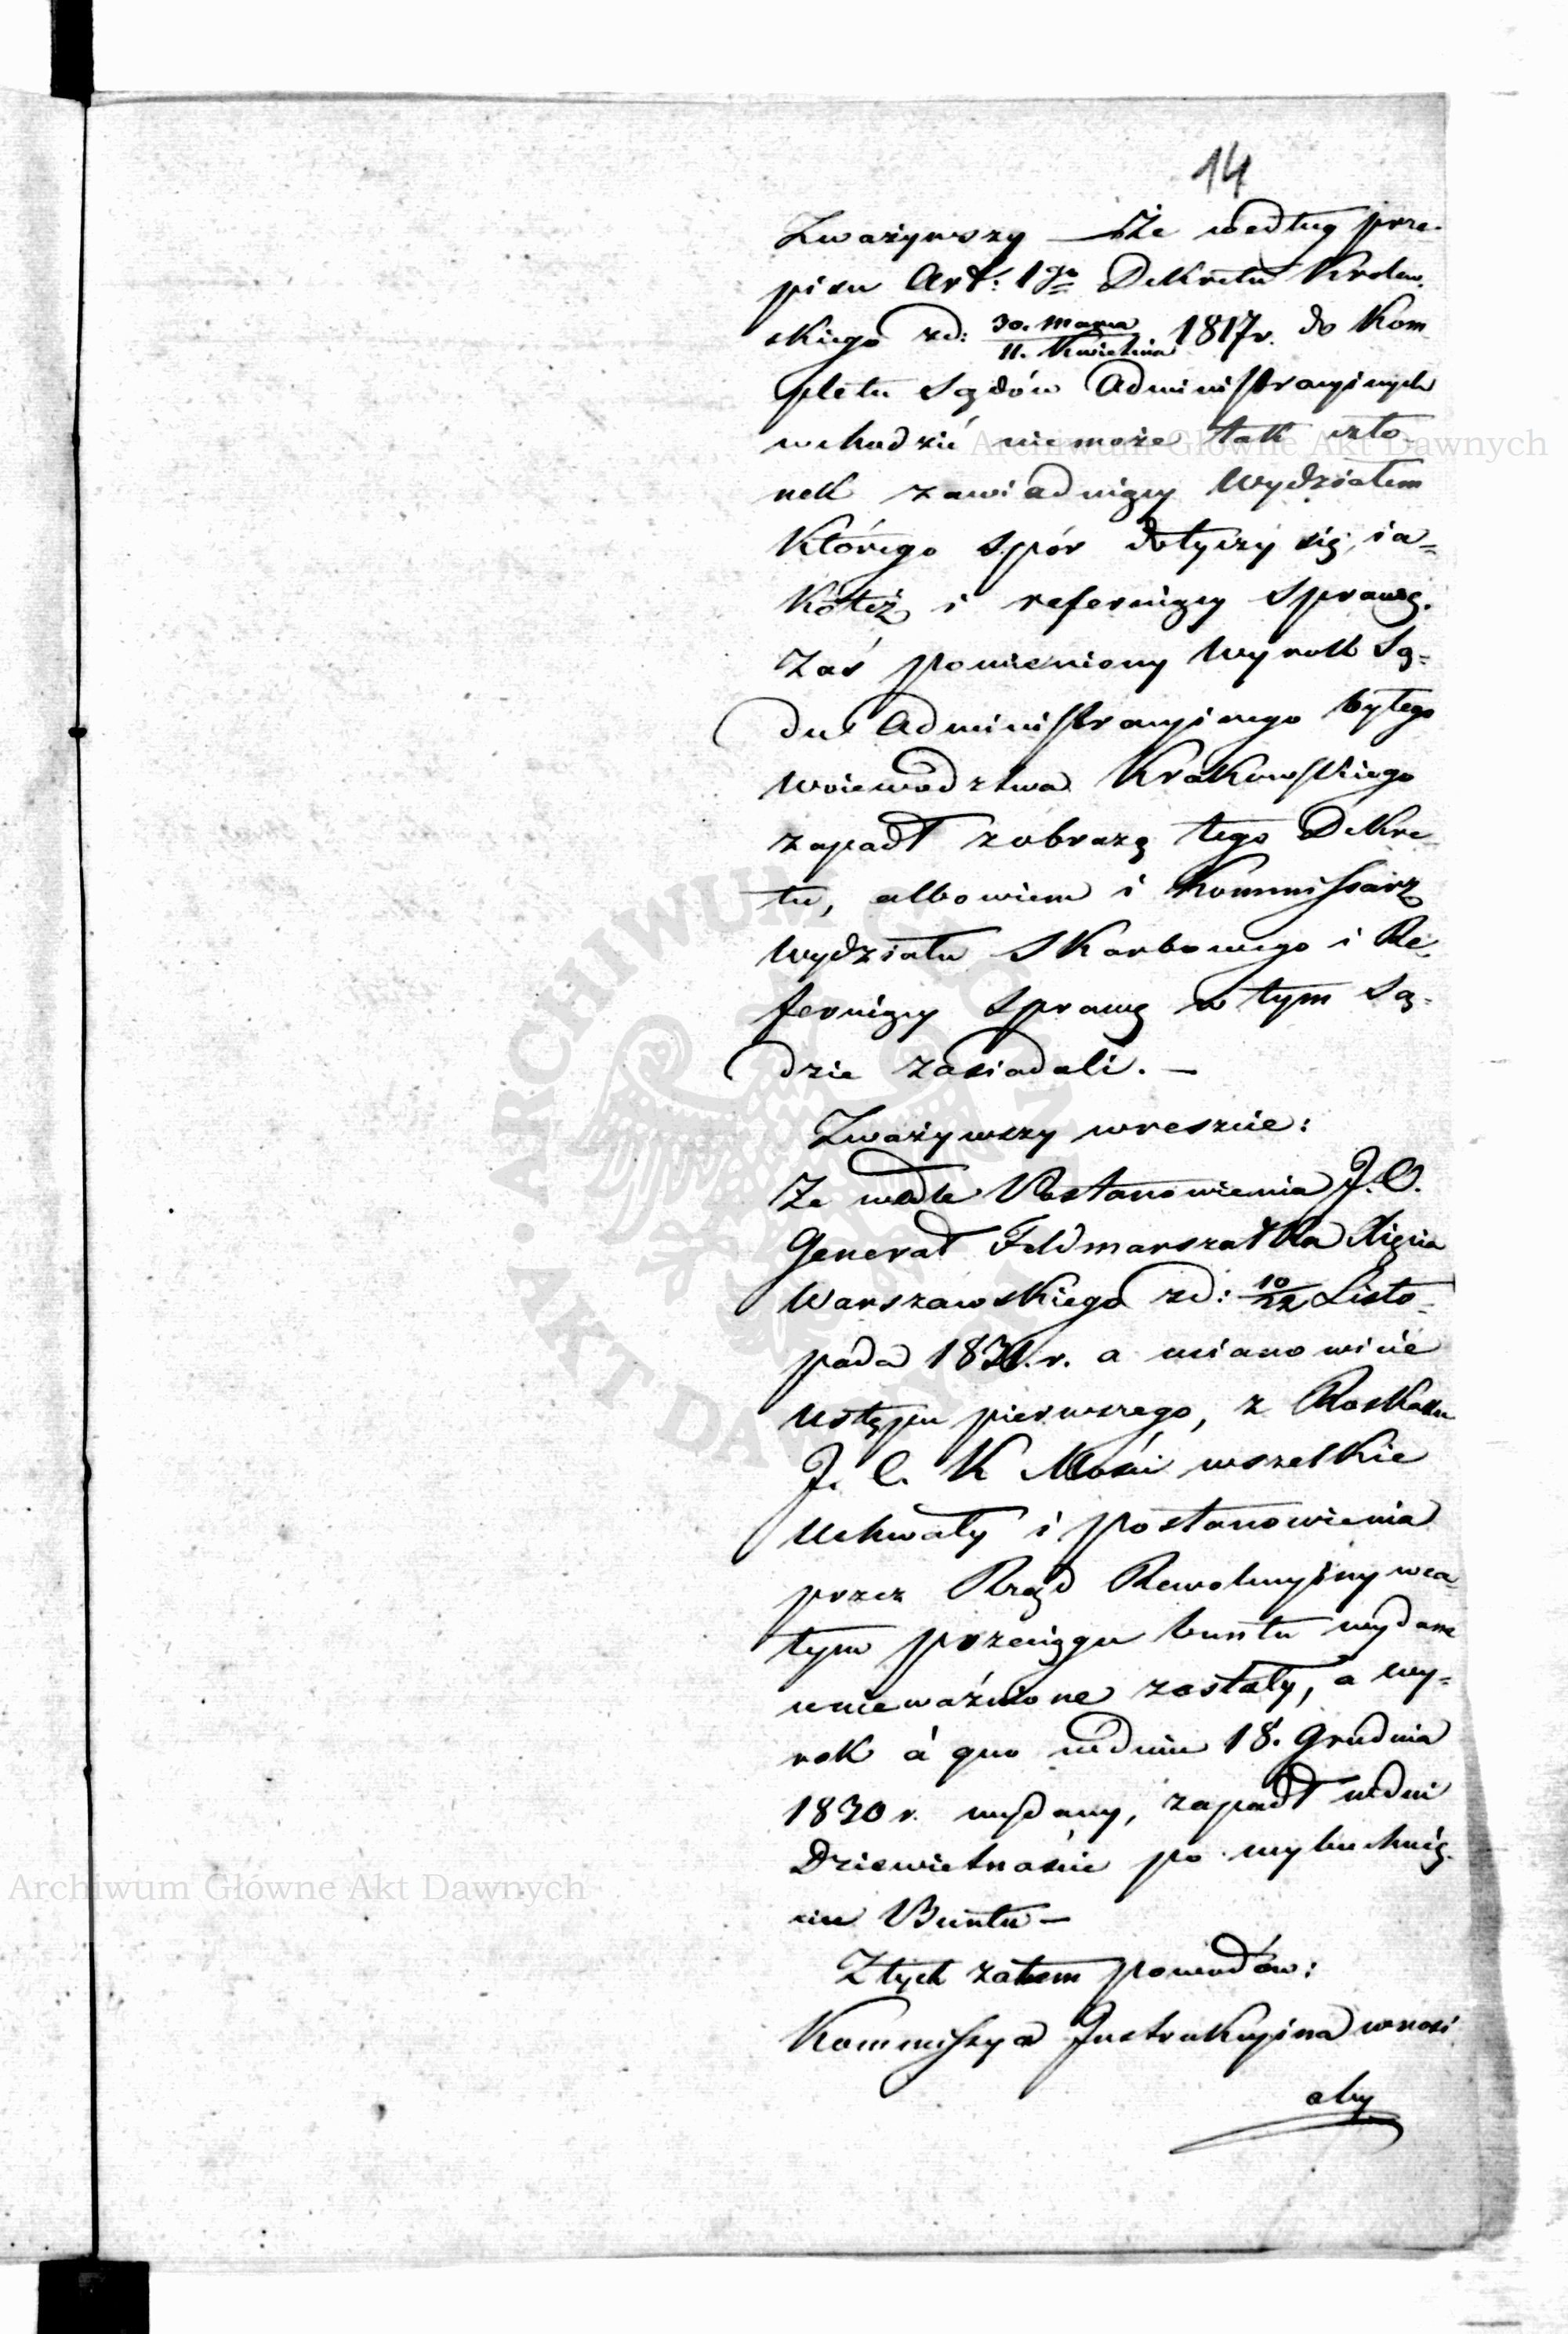 14
Zważywszy – Że według prze-
pisu Art: 1go Dekretu Królew-
skiego zd: 30. Marca / 11. Kwietnia 1817 r. do Kom
pletu Sądów Administracyinych
wchodzić niemoże tak czło-
nek zawiaduiący Wydziałem
którego spór dotyczy się, ia=
kotéż i referuiący Sprawę.
Zaś pomieniony Wyrok Są=
du Administracyinego byłego
Woiewodztwa Krakowskiego
zapadł z obrazą tego Dekre
tu, albowiem i Kommissarz
Wydziału Skarbowego i Re-
feruiący Sprawę w tym Są-
dzie zasiadali. –
Zważywszy wreszcie:
Że wedle Postanowienia J. O.
Generał Feldmarszałka Xięcia
Warszawskiego zd: 10/22 Listo-
pada 1831. r. a mianowicie
Ustępu pierwszego, z Roskazu
J. C. K Mości wszelkie
Uchwały i postanowienia
przez Rząd Rewolucyiny wca-
łym przeciągu buntu wydane
unieważnione zostały, a wy=
rok á quo wdniu 18. Grudnia
1830 r. wydany, zapadł wdni
Dziewietnaście po wybuchnię-
ciu Buntu –
Z tych zatem powodów:
Kommissya Instrukcyina wnosi
aby
Archiwum Główne Akt Dawnych
Archiwum Główne Akt Dawnych
ARCHIWUM GŁÓWNE AKT DAWNYCH